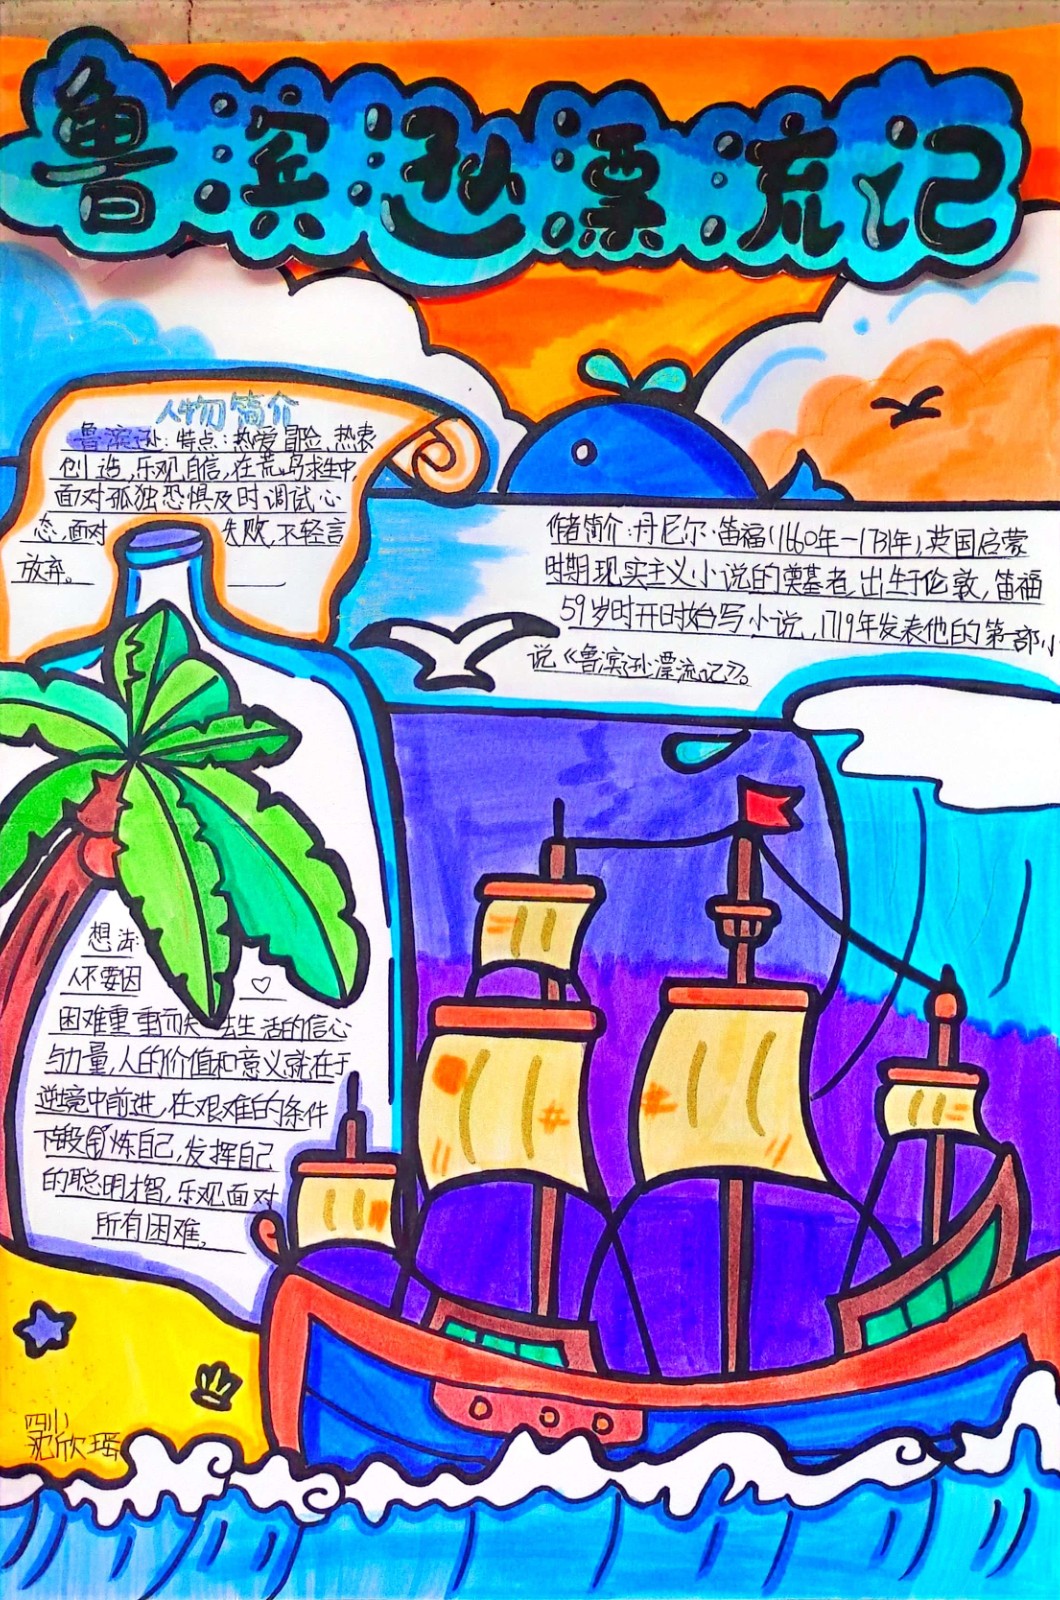 鲁滨逊漂流记
人物简介
鲁滨逊:特点:热爱冒险,热衷
创造,乐观自信,在荒岛求生中,
面对孤独恐惧及时调试心
态,面对失败,不轻言
放弃。
作者简介:丹尼尔·笛福(1660年-1731年),英国启蒙
时期现实主义小说的奠基者,出生于伦敦,笛福
59岁时开时始写小说,1719年发表他的第一部小
说《鲁滨逊漂流记》。
想法:
人不要因
困难重重而失去生活的信心
与力量,人的价值和意义就在于
逆境中前进,在艰难的条件
下锻炼自己,发挥自己
的聪明才智,乐观面对
所有困难。
沈欣瑶